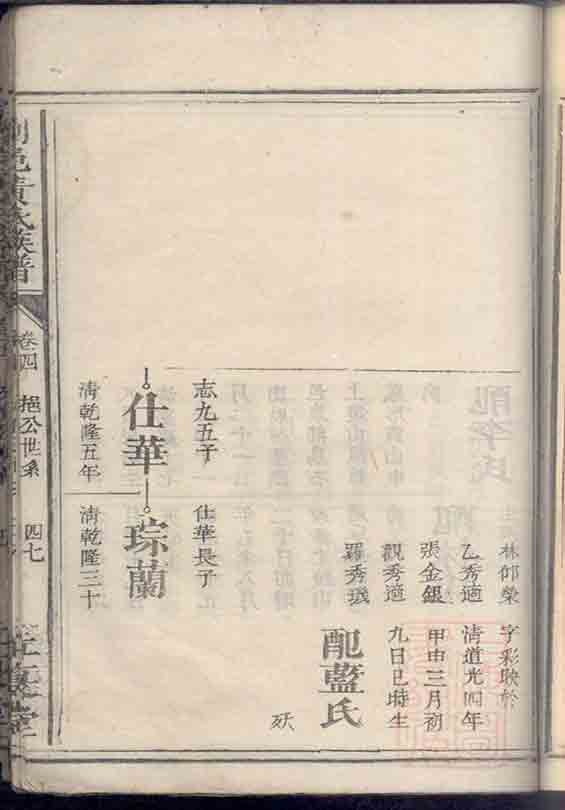 林邵榮
乙秀適
張金銀
觀秀適
羅秀璣
字彩映於
清道光四年
甲申三月初
九日巳時生
配藍氏
歿
志九五子
仕華
清乾隆五年
仕華長子
琮蘭
清乾隆三十
邑黃氏族譜
卷四
挹公世系
四七